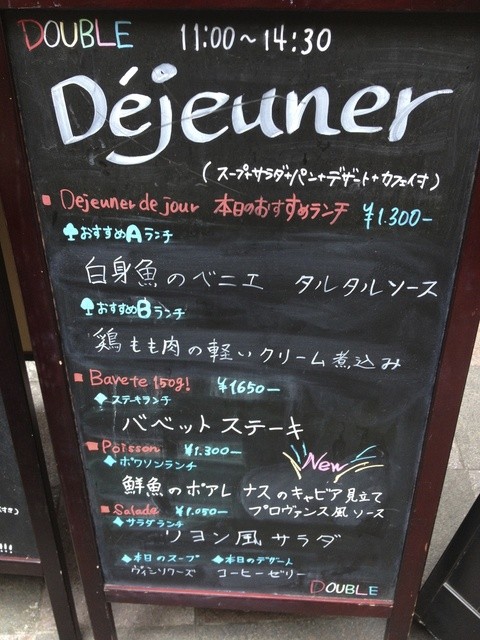 DOUBLE 11:00〜14:30
Déjeuner
(スープ+サラダ+パン+デザート+カフェ付)
Dejeuner de jour 本日のおすすめランチ ¥1.300-
おすすめAランチ
白身魚のベニエ タルタルソース
おすすめBランチ
鶏もも肉の軽いクリーム煮込み
Bavete 150g! ¥1650-
ステーキランチ
バベットステーキ
Poisson ¥1.300-
ポワソンランチ
New
鮮魚のポアレ ナスのキャビア見立て
プロヴァンス風ソース
Salade ¥1.050-
サラダランチ
リヨン風サラダ
本日のスープ 本日のデザート
ヴィシソワーズ コーヒーゼリー
DOUBLE